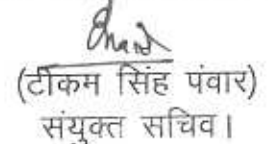 (टीकम सिंह पंवार)
संयुक्त सचिव।